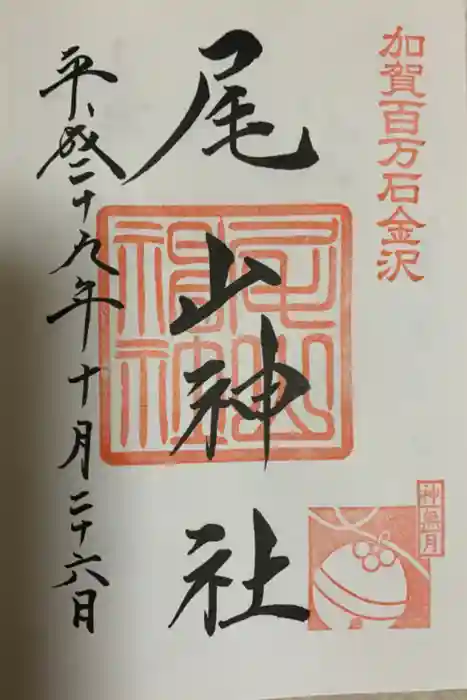 加賀百万石金沢
尾山神社
神無月
平成二十九年十月二十六日